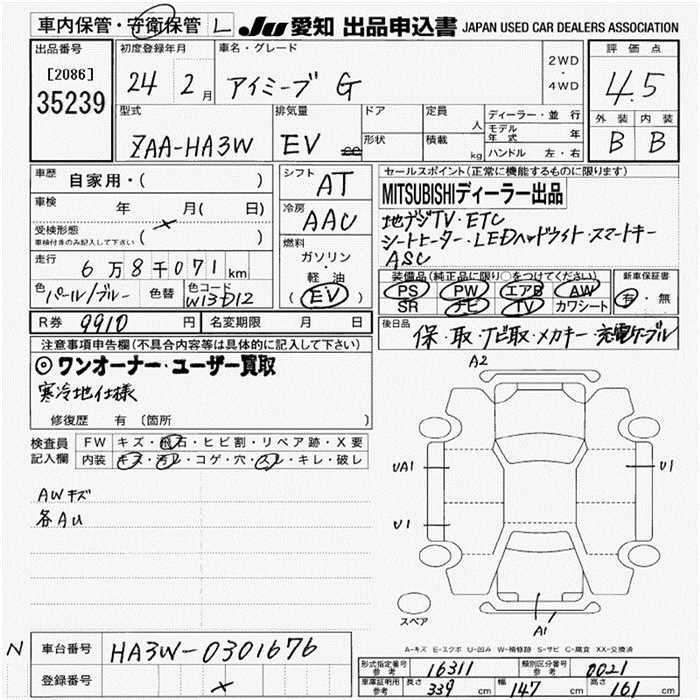 車内保管・守衛保管 L JU 愛知 出品申込書 JAPAN USED CAR DEALERS ASSOCIATION
出品番号 初度登録年月 車名・グレード 評価点
[2086] 24 2月 アイミーブ G 2WD・4WD 4.5
35239
型式 排気量 ドア 定員 人 ディーラー・並行 外装 内装
ZAA-HA3W EV cc 形状 積載 kg モデル年式 年 B B
ハンドル 左・右
車歴 自家用・( ) シフト AT セールスポイント(正常に機能するものに限ります)
車検 年 月( 日) 冷房 AAC MITSUBISHIディーラー出品
受検形態 ( × ) 地デジTV・ETC
車検付きのみ記入して下さい 燃料 シートヒーター・LEDヘッドライト・スマートキー
走行 6万8千071km ガソリン・軽油 ASC
(EV) 装備品(純正品に限り○をつけてください) 新車保証書
色 パール/ブルー 色替 色コード W13D12 PS PW エアB AW 有・無
SR ナビ TV カワシート
R券 9910円 名変期限 月 日 後日品 保・取・ナビ取・メカキー 充電ケーブル
注意事項申告欄(不具合内容等は具体的に記入して下さい)
◎ワンオーナー・ユーザー買取
寒冷地仕様
修復歴 有 〔箇所 〕
検査員記入欄 FW キズ・飛石・ヒビ割・リペア跡・X要
内装 キズ・汚レ・コゲ・穴・スレ・キレ・破レ
AWキズ
各AU
A2
UA1 U1
U1
A1
スペア
A-キズ E-エクボ U-凹み W-補修跡 S-サビ C-腐食 XX-交換済
N 車台番号 HA3W-0301676
登録番号 ×
形式指定番号 参考 16311 類別区分番号 参考 0021
車庫証明用 参考 長さ 339cm 幅 147cm 高さ 161cm